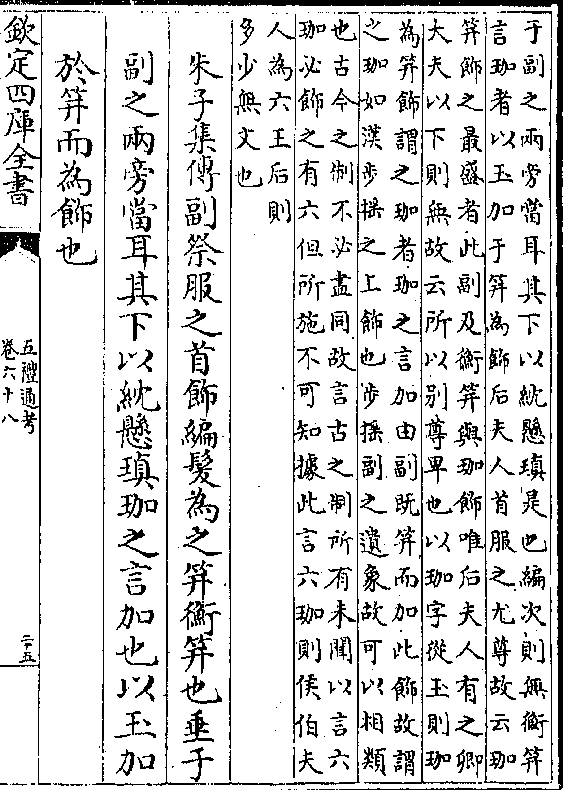 于副之兩旁當耳其下以紞懸瑱是也編次則無衡笄
言珈者以玉加于笄為飾后夫人首服之尤尊故云珈
笄飾之最盛者此副及衡笄與珈飾唯后夫人有之卿
大夫以下則無故云所以别尊卑也以珈字從玉則珈
為笄飾謂之珈者珈之言加由副既笄而加此飾故謂
之珈如漢步摇之上飾也步摇副之遺象故可以相類
也古今之制不必盡同故言古之制所有未聞以言六
珈必飾之有六但所施不可知據此言六珈則侯伯夫
人為六王后則
多少無文也
朱子集傳副祭服之首飾編髮為之笄衡笄也垂于
副之兩旁當耳其下以紞懸瑱珈之言加也以玉加
於笄而為飾也
欽定四庫全書
五禮通考
卷六十八
二十五